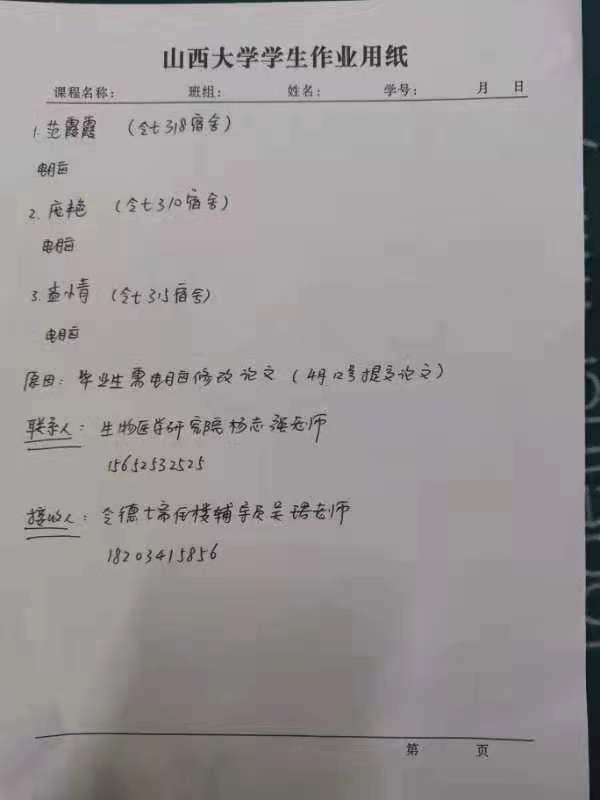 山西大学学生作业用纸
课程名称： 班组： 姓名： 学号： 月 日
1. 范霞霞 （令七318宿舍）
电脑
2. 庞艳 （令七310宿舍）
电脑
3. 孟小青 （令七315宿舍）
电脑
原因：毕业生需电脑修改论文（4月12号提交论文）
联系人：生物医学研究院杨志强老师
15652532525
接收人：令德七斋宿楼辅导员吴珺老师
18203415856
第 页